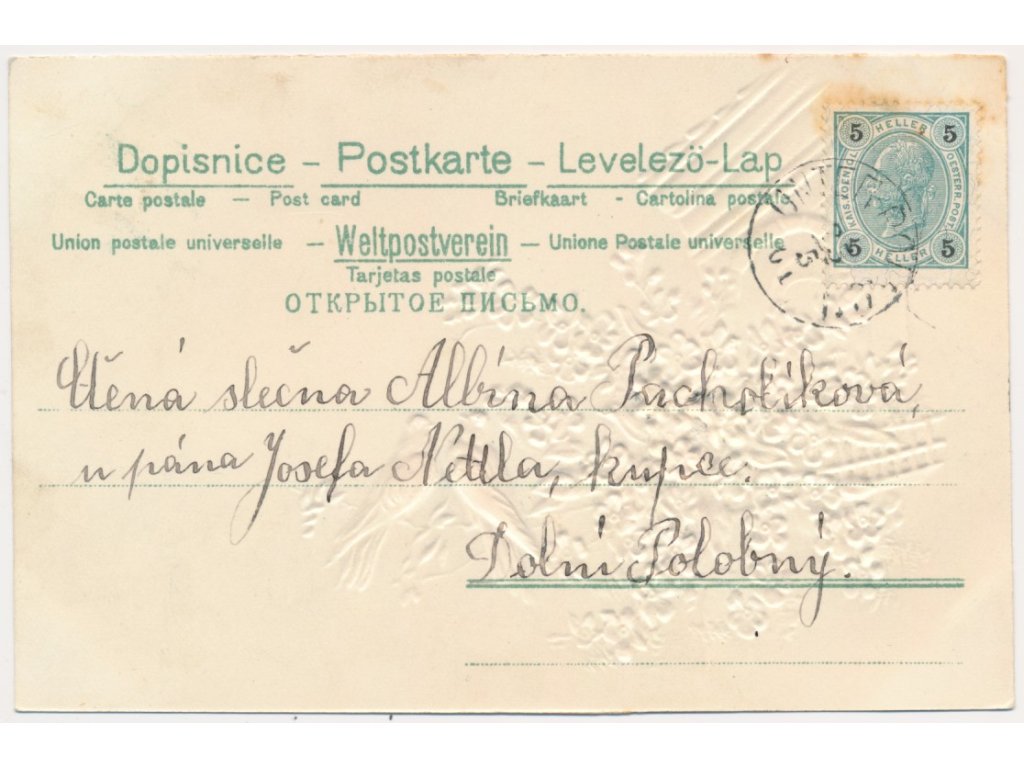 Dopisnice – Postkarte – Levelező-Lap
Carte postale — Post card Briefkaart - Cartolina postale
Union postale universelle – Weltpostverein – Unione Postale universelle
Tarjetas postale
ОТКРЫТОЕ ПИСЬМО.
5 HELLER 5
KAIS. KOENIGL. OESTERR. POST
5 HELLER 5
Ctěná slečna Albína Pacholíková,
u pána Josefa Nettla, kupce.
Dolní Polobný.